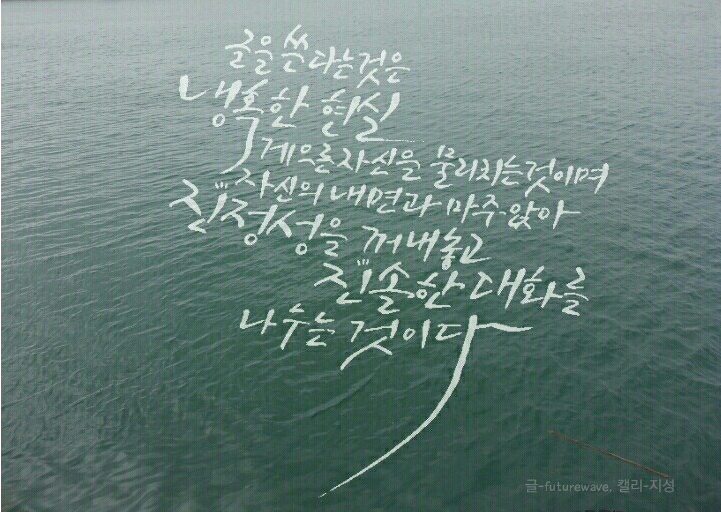 글을 쓴다는것은
냉혹한 현실
게으른자신을 물리치는것이며
자신의 내면과 마주앉아
진정성을 꺼내놓고
진솔한 대화를
나누는 것이다
글-futurewave, 캘리-지성